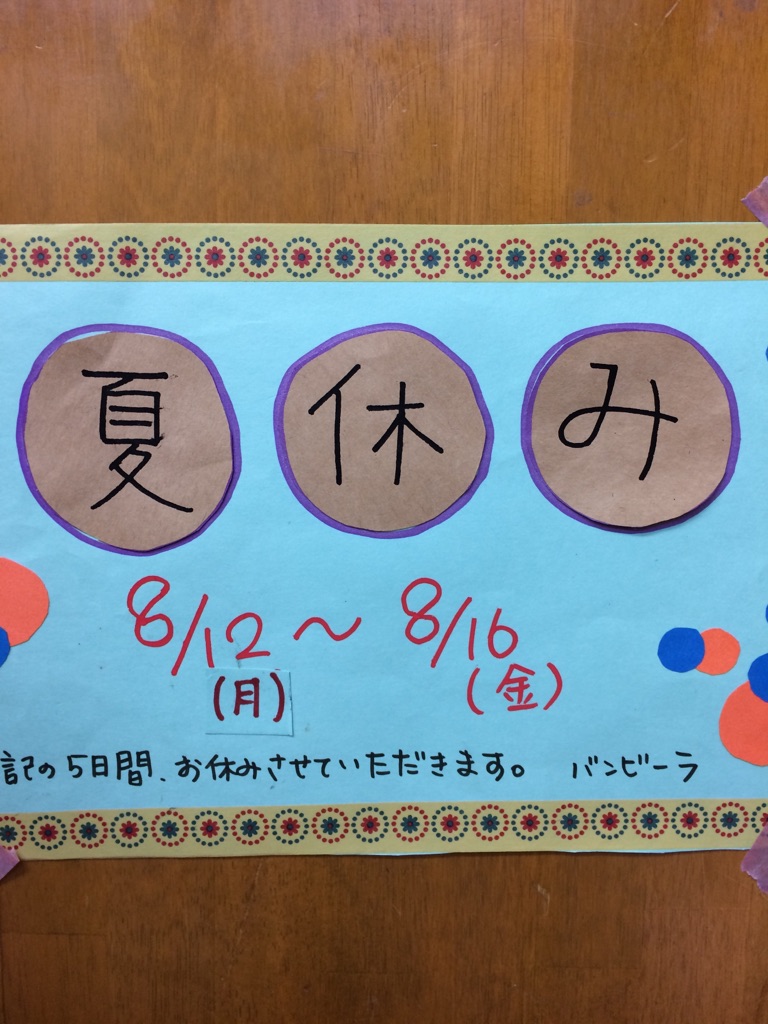 夏休み
8/12〜8/16
(月) (金)
記の5日間、お休みさせていただきます。 バンビーラ